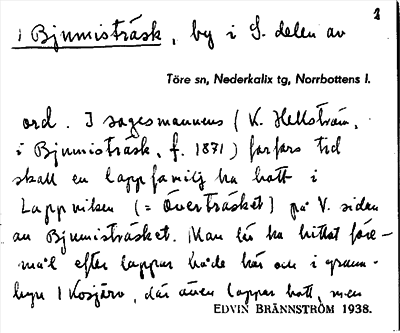 1
i Bjumisträsk, by i S. delen av
Töre sn, Nederkalix tg, Norrbottens l.
ord. I sagesmannens (K. Hellström,
i Bjumisträsk, f. 1871) farfars tid
skall en lappfamilj ha bott i
Lappviken (= Överträsket) på V. sidan
av Bjumisträsket. Man lär ha hittat före-
mål efter lappar både här och i grann-
byn Kosjärv, där även lappar bott, men
EDVIN BRÄNNSTRÖM 1938.